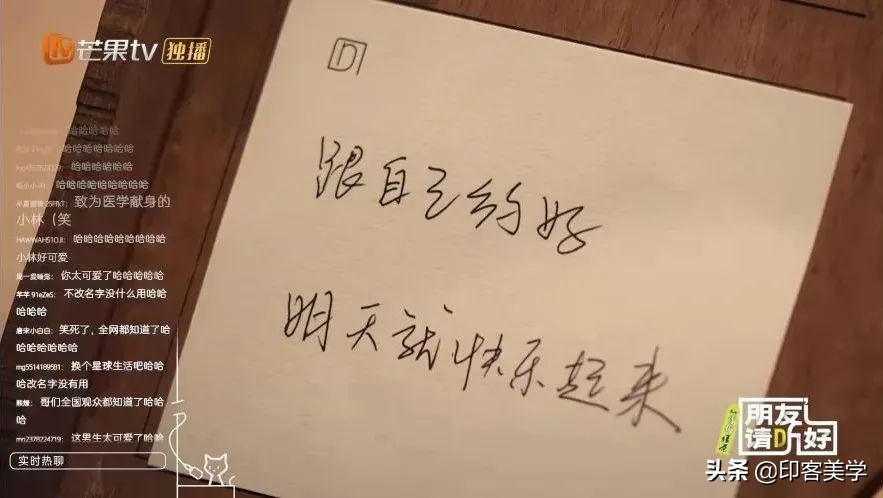 芒果tv 独播
D
跟自己约好
明天就快乐起来
哈哈哈哈哈
哈哈哈哈哈哈哈
哈哈哈哈哈哈
哈哈哈哈哈哈哈哈哈
致为医学献身的
小林(笑
HAWWAH51OJI: 哈哈哈哈哈哈哈哈哈
小林好可爱
你太可爱了哈哈哈哈哈
芊芊 91eZeS: 不改名字没什么用哈哈
哈哈哈
唐宋小白白: 笑死了,全网都知道了哈
哈哈哈哈哈哈
mg5514189581: 换个星球生活吧哈哈
哈改名字没有用
哥们全国观众都知道了哈哈
哈
mg2378224719: 这男生太可爱了哈哈
实时热聊
朋友
请D好
头条 @印客美学